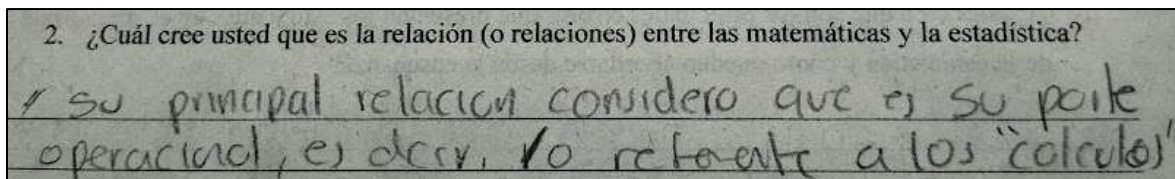 2. ¿Cuál cree usted que es la relación (o relaciones) entre las matemáticas y la estadística?
su principal relación considero que es su parte
operacional, es decir, lo referente a los "calculos"